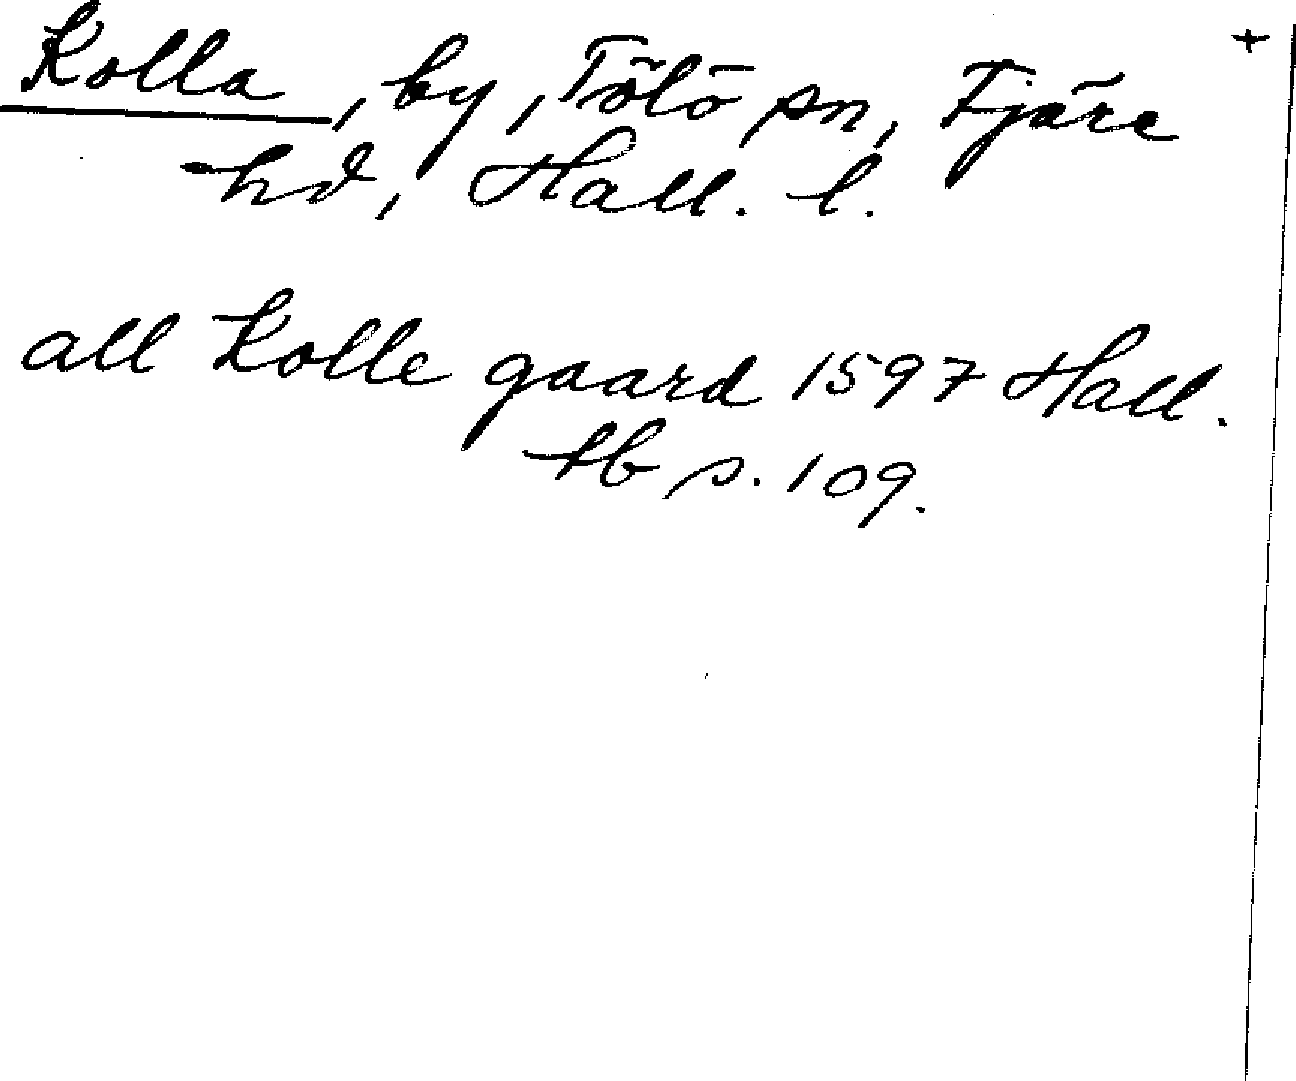 Kolla, by, Tölö sn, Fjäre +
hd, Hall. l.
all Kolle gaard 1597 Hall.
tb s. 109.